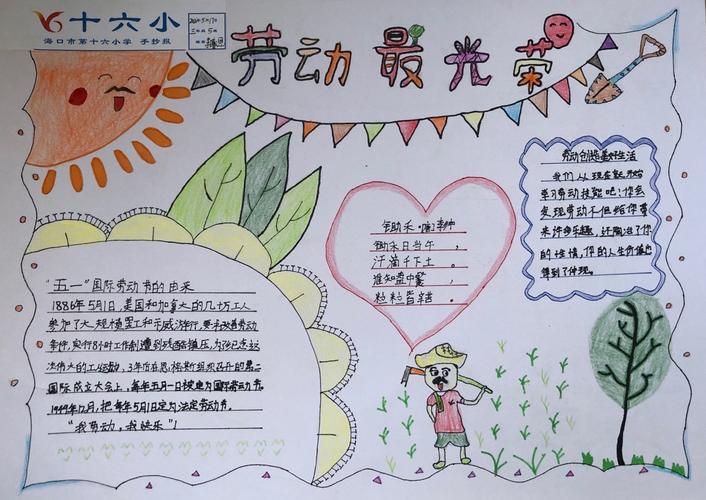 十六小
海口市第十六小学 手抄报
劳动最光荣
劳动创造美好生活
我们从现在就开始
学习劳动技能吧！你会
发现劳动不但给你带
来许多乐趣，还陶冶了你
的性情，你的人生价值也
得到了体现。
锄禾
锄禾日当午，
汗滴禾下土。
谁知盘中餐，
粒粒皆辛苦。
"五一"国际劳动节的由来
1886年5月1日，美国和加拿大的几十万工人
参加了大规模罢工和示威游行，要求改善劳动
条件，实行8小时工作制遭到残酷镇压，为了纪念这
次伟大的工人运动，3年后恩格斯组织召开的第二
国际成立大会上，每年五月一日被定为国际劳动节。
1949年12月，把每年5月1日定为法定劳动节。
"我劳动，我快乐"！